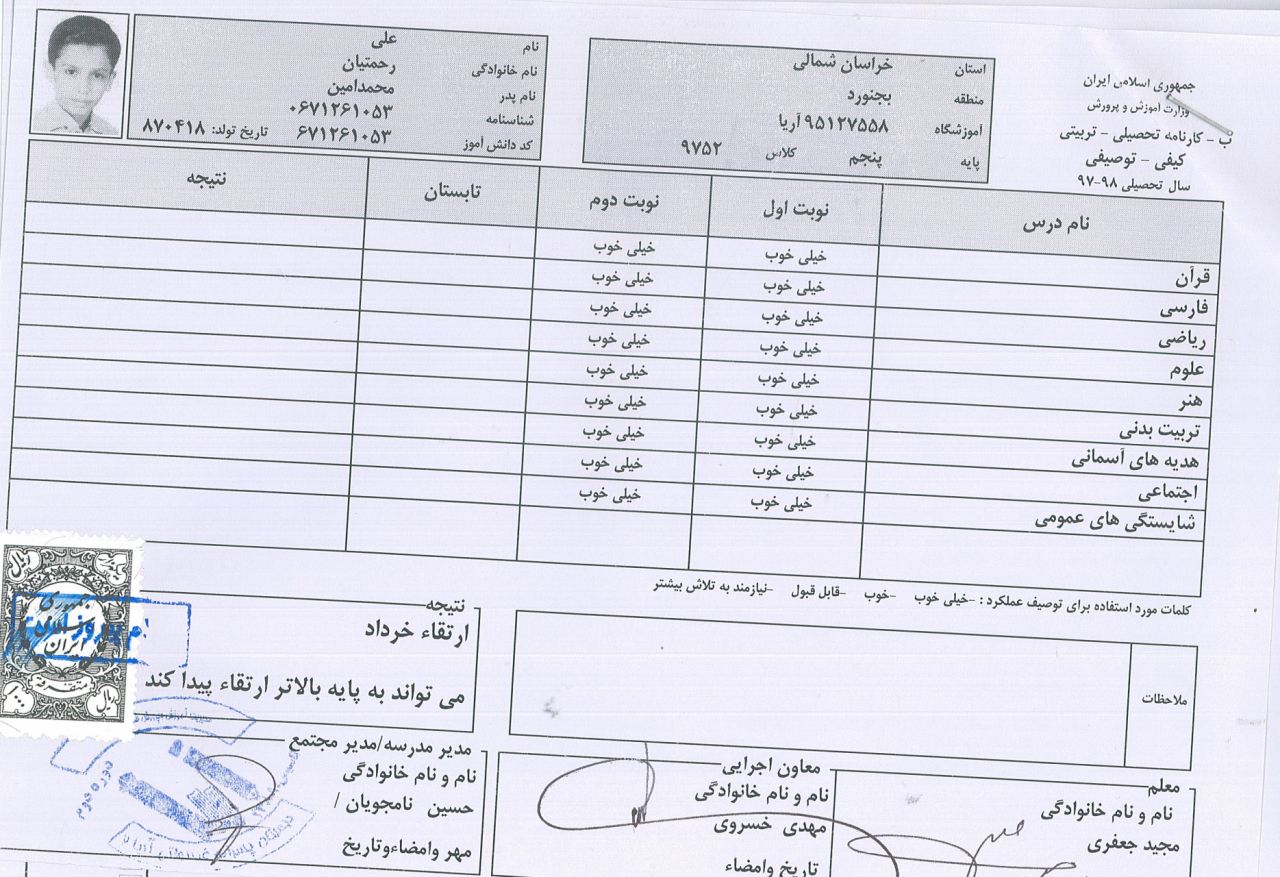 جمهوری اسلامی ایران
وزارت آموزش و پرورش
ب - کارنامه تحصیلی - تربیتی
کیفی - توصیفی
سال تحصیلی ۹۸-۹۷
استان خراسان شمالی
منطقه بجنورد
آموزشگاه ۹۵۱۲۷۵۵۸ آریا
پایه پنجم کلاس ۹۷۵۲
نام علی
نام خانوادگی رحمتیان
نام پدر محمدامین
شناسنامه ۰۶۷۱۲۶۱۰۵۳
کد دانش آموز ۶۷۱۲۶۱۰۵۳ تاریخ تولد: ۸۷۰۴۱۸
نام درس نوبت اول نوبت دوم تابستان نتیجه
قرآن خیلی خوب خیلی خوب
فارسی خیلی خوب خیلی خوب
ریاضی خیلی خوب خیلی خوب
علوم خیلی خوب خیلی خوب
هنر خیلی خوب خیلی خوب
تربیت بدنی خیلی خوب خیلی خوب
هدیه های آسمانی خیلی خوب خیلی خوب
اجتماعی خیلی خوب خیلی خوب
شایستگی های عمومی خیلی خوب خیلی خوب
کلمات مورد استفاده برای توصیف عملکرد : -خیلی خوب -خوب -قابل قبول -نیازمند به تلاش بیشتر
ملاحظات
نتیجه
ارتقاء خرداد
می تواند به پایه بالاتر ارتقاء پیدا کند
معلم
نام و نام خانوادگی
مجید جعفری
معاون اجرایی
نام و نام خانوادگی
مهدی خسروی
تاریخ وامضاء
مدیر مدرسه/مدیر مجتمع
نام و نام خانوادگی
حسین نامجویان /
مهر وامضاءوتاریخ
ریال
جمهوری
اسلامی
ایران
متفرقه
ریال
دوره دوم